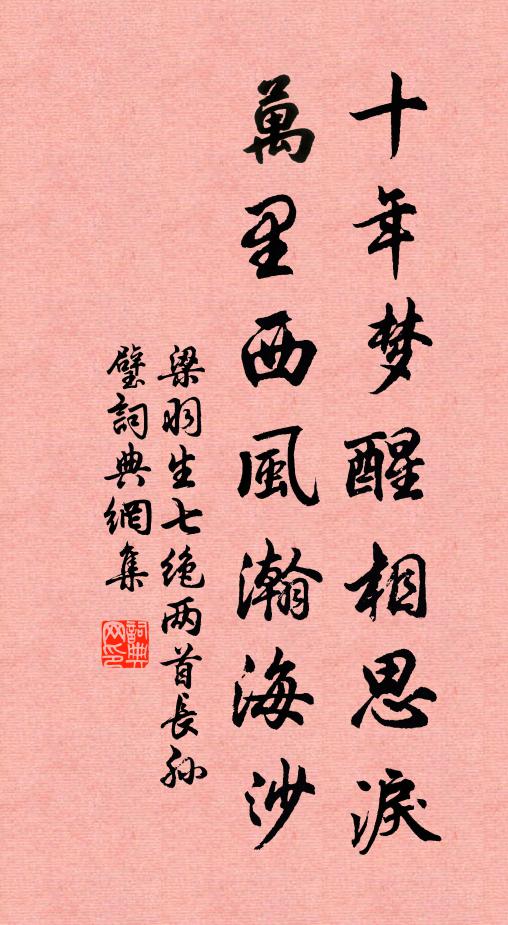 十年梦醒相思淚
萬里西風瀚海沙
梁羽生七绝两首長孙
璧詞典網集
詞典網印